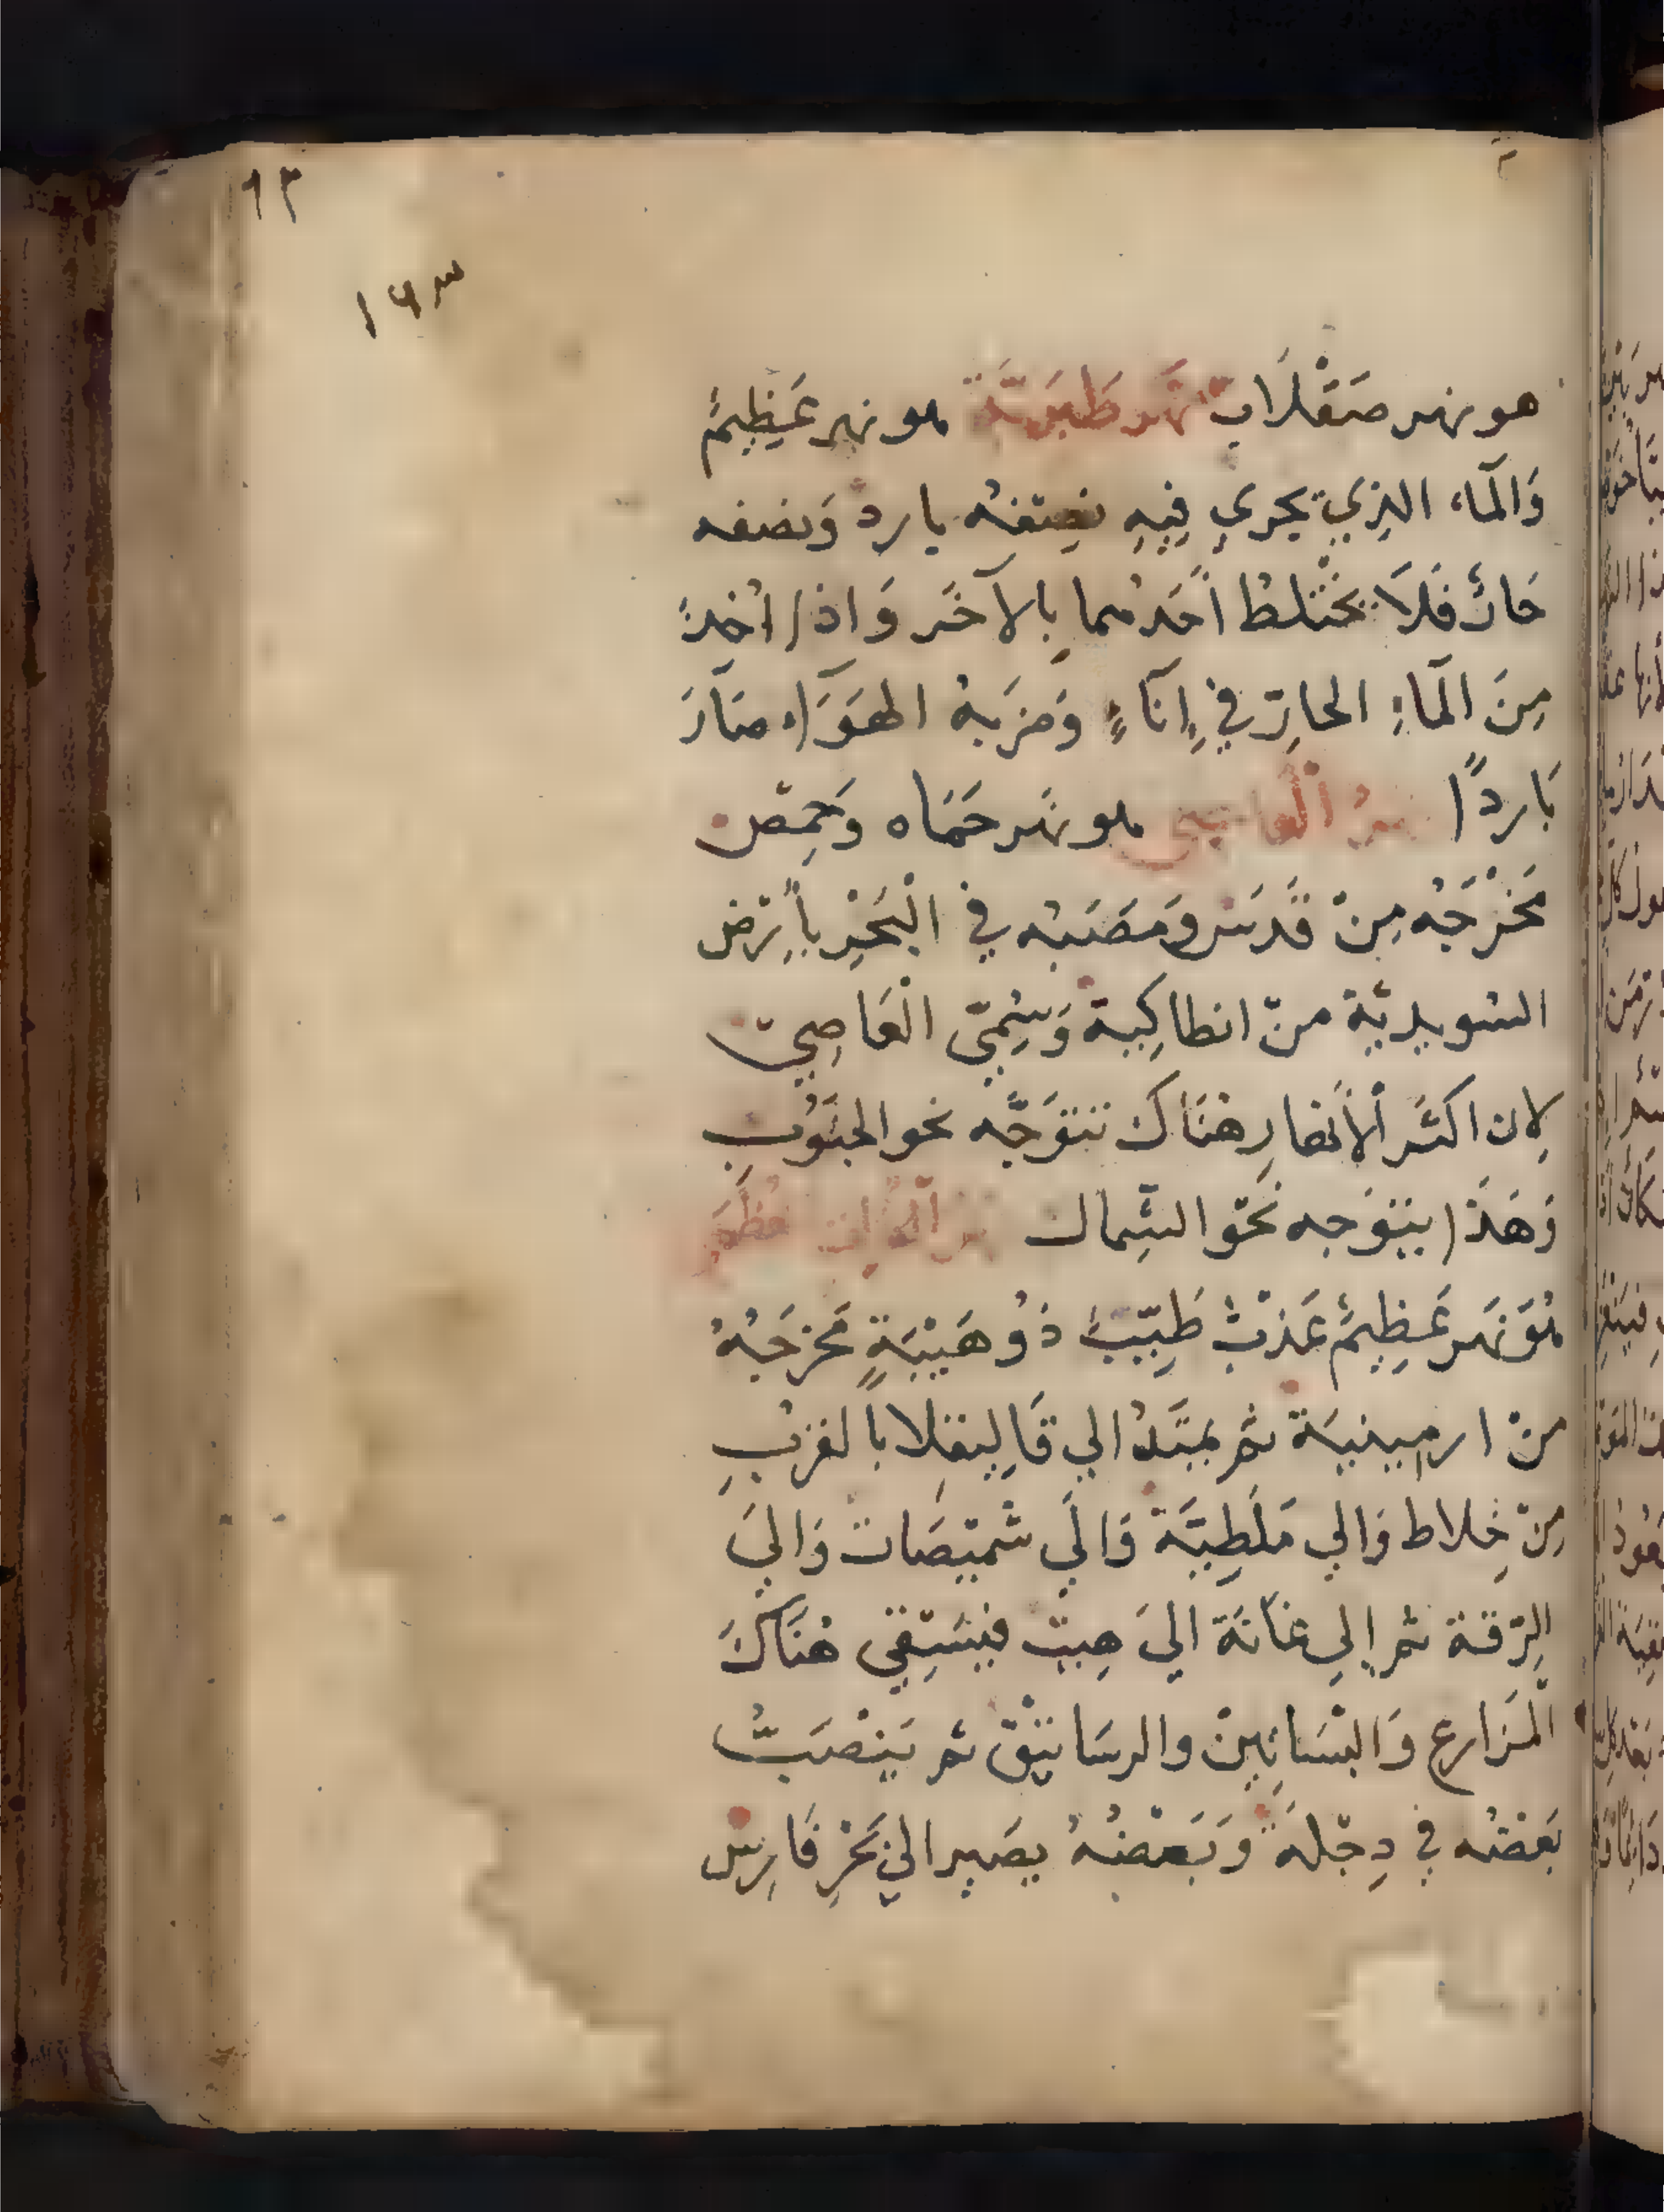 ٩٣
١٩٣
هو نهر صَقْلَاب نَهر طَبَرِيَّة هو نهر عَظِيمٌ
وَالمَاء الذِي يجري فِيهِ نصفهُ بارد وَنصفه
حَارٌ فَلَا يَخْتلطُ أَحَدُهما بِالآخَر وَاذا اُخِذَ
مِنَ المَاءِ الحارّ في إِنَآءٍ وَضَرَبهُ الهَوَاء صَارَ
بَاردًا نهرُ الْعاصي هو نهَر حَمَاه وَحِمْص
مَخْرَجُه مِنْ قَدَس وَمَصَبُه في الْبَحْرِ بأَرْض
السُويديَّة منْ انطاكِية وَسُمِّي الْعَاصِي
لِان اكثَر ألأَنهارِ هنَاكَ تتوَجَّه نحو الجنُوبِ
وَهَذَا يتوَجه نَحْو الشِمال نهر الْفُرات
هُوَ نَهَر عَظِيمٌ عَذْبٌ طَيِّبٌ ذُو هَيْبَةٍ مَخرَجُهُ
منْ ارمِينيَة ثم يمتَدُ الي قَالِيقِلا بالغربِ
مِنْ خِلاط وَالي مَلَطِيَّة وَالَي شَمْيصَات وَاليَ
الرّقة ثم إِلي عَانَة اليَ هِيت فيَسْقِي هُنَاكَ
الْمَزارع وَالبْسَاتِينْ والرسَاتيْق ثم يَنْصَبُّ
بَعْضُه في دِجْلَة وَبَعْضُهُ يصَير الي بَحْرِ فَارِس